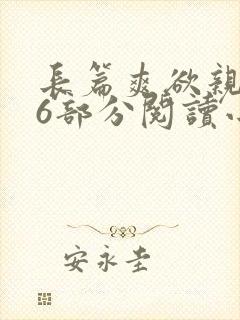 長篇爽欲親
6部分閱讀
安永圭